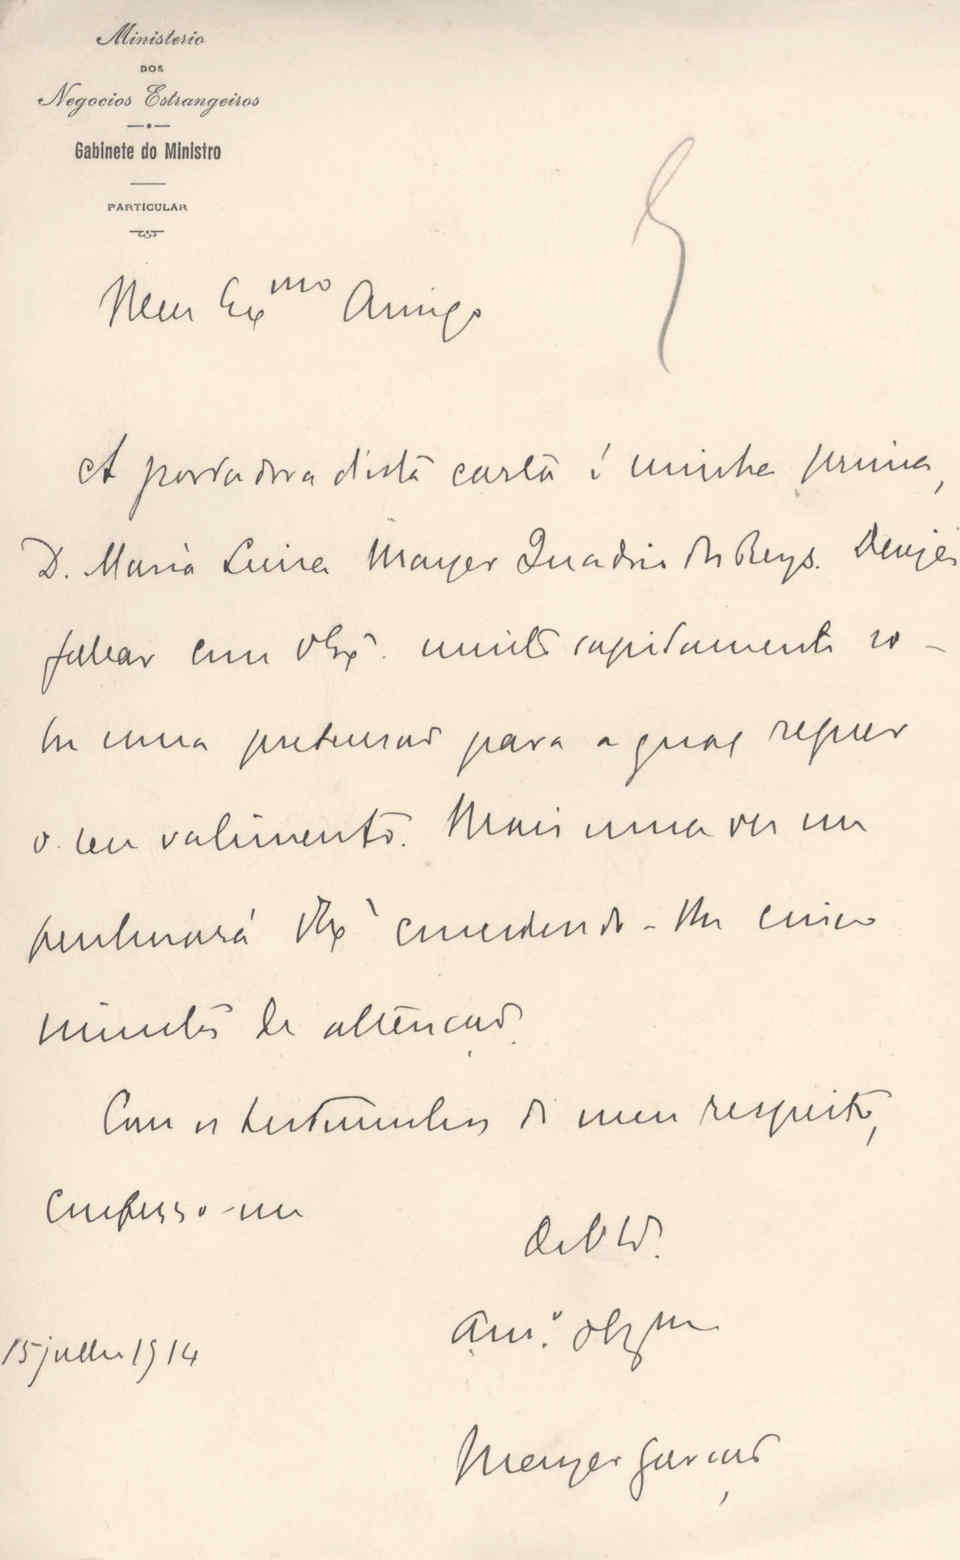 Ministerio
DOS
Negocios Estrangeiros
Gabinete do Ministro
PARTICULAR
Meu Exmo Amigo
A portadora d'esta carta é minha prima,
D. Maria Luisa Mayer Quadrio dos Reys. Deseja
fallar com V. Exª. muito rapidamente so-
bre uma pretensão para a qual requer
o seu valimento. Mais uma vez me
penhorará V. Exª concedendo-lhe cinco
minutos de attenção.
Com os testemunhos do meu respeito,
confesso-me
De V. Exª.
Amº. obgmo
15 julho 1914
Mayer Garção